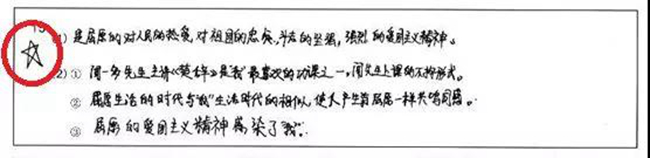 15
(1) 是屈原的对人民的热爱,对祖国的忠诚,斗志的坚强,强烈的爱国主义精神。
(2) ① 闻一多先生主讲《楚辞》是“我”最喜欢的功课之一,闻先生上课的不拘形式。
② 屈原生活的时代与“我”生活时代的相似,使人产生着屈原一样共鸣同感。
③ 屈原的爱国主义精神感染了“我”。